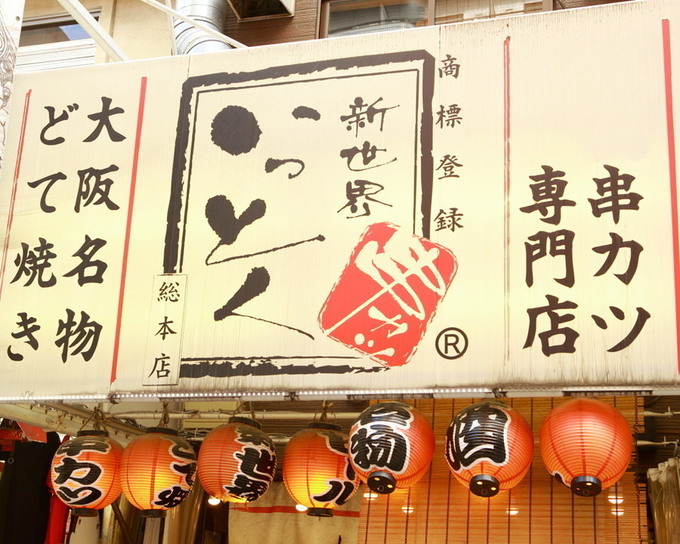 串カツ
専門店
商標登録
新世界
いっとく
串カツ
総本店
®
大阪名物
どて焼き
串カツ
どて焼
新世界
名物
酒